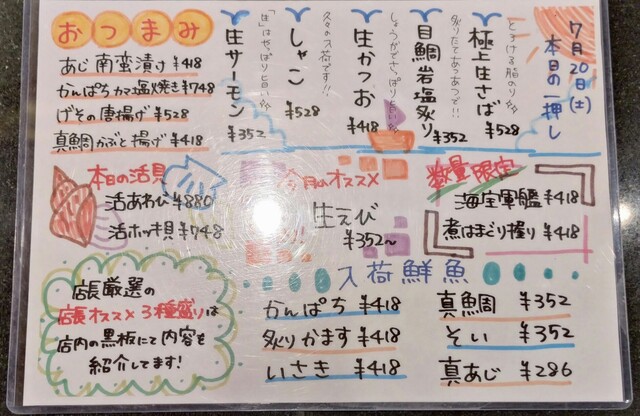 7月20日(土)
本日の一押し
とろける脂のり
極上生さば
¥528
炙りたてあつあつで!!
目鯛岩塩炙り
¥352
しょうがでさっぱり旨い
生かつお
¥418
久々の入荷です!!
しゃこ
¥528
「生」はやっぱり旨い
生サーモン
¥352
おつまみ
あじ南蛮漬け ¥418
かんぱちカマ塩焼き ¥748
げその唐揚げ ¥528
真鯛かぶと揚げ ¥418
本日の活貝
活あわび ¥880
活ホッキ貝 ¥748
今月のオススメ
生えび
¥352~
数量限定
¥418
煮はまぐり握り ¥418
店長厳選の
店長オススメ3種盛りは
店内の黒板にて内容を
紹介してます!
入荷鮮魚
かんぱち ¥418
炙りかます ¥418
いさき ¥418
真鯛 ¥352
そい ¥352
真あじ ¥286